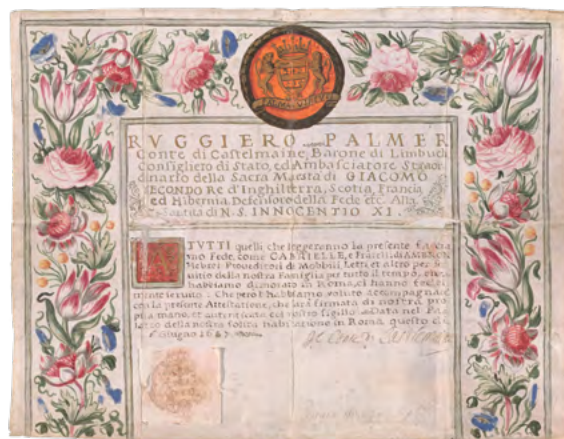 RVGGIERO PALMER
Conte di Castelmaine, Barone di Limbuch
Consigliero di Stato, ed Ambasciatore Straor
dinario della Sacra Maestà di GIACOMO
SECONDO Re d'Inghilterra, Scotia, Francia
ed Hibernia, Defensore della Fede etc. Alla
Santità di N. S. INNOCENTIO XI.
A TVTTI quelli che leggeranno la presente
Fede, come GABRIELLE, e Fratelli di
Hebrei Proveditori di Mobbili, Letti et altro per
vitio della nostra Famiglia per tutto il tempo, che
habbiamo dimorato in Roma, ci hanno
mente servito. Che però l'habbiamo voluto accompagnare
con la presente Attestatione, che sarà firmata di nostra pro
pria mano, et autenticata col nostro sigillo. Data nel Pa
lazzo della nostra solita habitatione in Roma, questo dì
Giugno 1687.